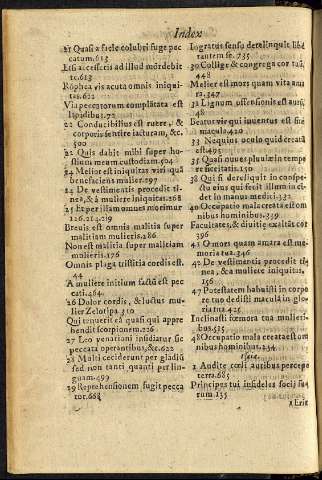 Index
21 Quasi a facie colubri fuge pec
catum.613
Et si accesseris ad illud mordebit
te.613
Rōphea vis acuta omnis iniqui-
tas.621
Via peccatorum complātata est
lipidibus.72
22 Conducibilius est ruere, &
corporis sentire iacturam, &c.
500
22 Quis dabit mihi super hu-
llium meam custodiam.504
24 Melior est iniquitas viri quā
benefaciens mulier.297
24 De vestimentis procedit ti-
nea, & a muliere iniquitas.268
25 Et per illam omnes morimur
126.214.219
Brevis est omnis malitia super
malitiam mulieris.286
Non est malitia super malitiam
mulieris.176
Omnis plaga tristitia cordis est.
44
A muliere initium factū est pec
cati.464.
26 Dolor cordis, & luctus mu-
lier Zelotipa.310
Qui tenuerit eā quasi qui appre
hendit scorpionem.226
27 Leo venationi insidiatur sic
peccata operantibus, &c.622
28 Multi ceciderunt per gladiū
sed non tanti quanti per lin-
guam.499
29 Reprehensionem fugit pecca
tor.668
Ingratus senso derelinquit libe
rantem se.735
30 Collige & congrega cor tuū,
448
Melier est mors quam vita ama
ra.347
31 Lignum offensionis est auri
48
Beatus vir qui inventus est sine
macula.420
33 Nequius oculo quid creatā
est.495
35 Quasi nuves pluviæ in tempo
re siccitatis.150
38 Qui si dereliquit in conspe-
ctu eius qui fecit illum incidet
in manus medici.332
40 Occupatio mala creata est om
nibus hominibus.339
Facultates, & divitiæ exaltāt cor
396
41 O mors quam amara est me-
moria tua.346
42 De vestimentis procedit ti
nea, & a muliere iniquitas.
156
47 Potestatem habuisti in corpo
re tuo dedisti maculā in glo-
ria tua.425
Inclinasti fœmora tua mulieri-
bus.525
48 Occupatio mala creata est om
nibus hominibus.254
Isaia.
1 Audite cœli auribus percepe
terra.685
Principes tui infideles socij fu-
rum.155
1 Erit